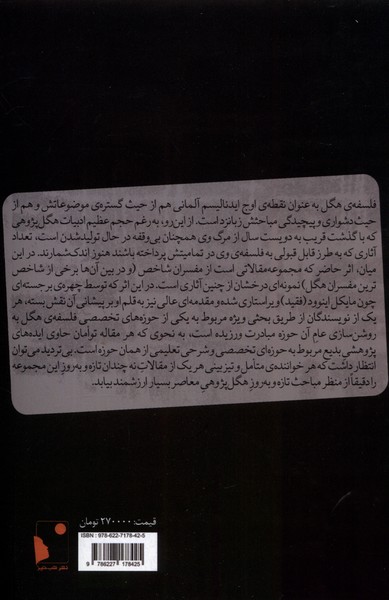 فلسفه‌ی هگل به عنوان نقطه‌ی اوج ایدئالیسم آلمانی هم از حیث گستره‌ی موضوعاتش و هم از
حیث دشواری و پیچیدگی مباحثش زبانزد است. از این رو، به رغم حجم عظیم ادبیات هگل پژوهی
که با گذشت قریب به دویست سال از مرگ وی همچنان بی‌وقفه در حال تولید شدن است، تعداد
آثاری که به طرز قابل قبولی به فلسفه‌ی وی در تمامیتش پرداخته باشند هنوز اندک‌شمارند. در این
میان، اثر حاضر که مجموعه مقالاتی است از مفسران شاخص (و در بین آن‌ها برخی از شاخص
ترین مفسران هگل) نمونه‌ای درخشان از چنین آثاری است. در این اثر که توسط چهره‌ی برجسته‌ای
چون مایکل اینوود (فقید) ویراستاری شده و مقدمه‌ای عالی نیز به قلم او بر پیشانی آن نقش بسته، هر
یک از نویسندگان از طریق بحثی ویژه مربوط به یکی از حوزه‌های تخصصی فلسفه‌ی هگل به
روشن‌سازی عام آن حوزه مبادرت ورزیده است، به نحوی که هر مقاله توأمان حاوی ایده‌های
پژوهشی بدیع مربوط به حوزه‌ای تخصصی و شرحی تعلیمی از همان حوزه است. بی‌تردید می‌توان
انتظار داشت که هر خواننده‌ی متأمل و تیزبینی هر یک از مقالاتِ نه چندان تازه و به‌روزِ این مجموعه
را دقیقاً از منظر مباحث تازه و به‌روزِ هگل‌پژوهیِ معاصر بسیار ارزشمند بیابد.
قیمت: ۲۷۰۰۰۰ تومان
ISBN: 978-622-7178-42-5
9 786227 178425